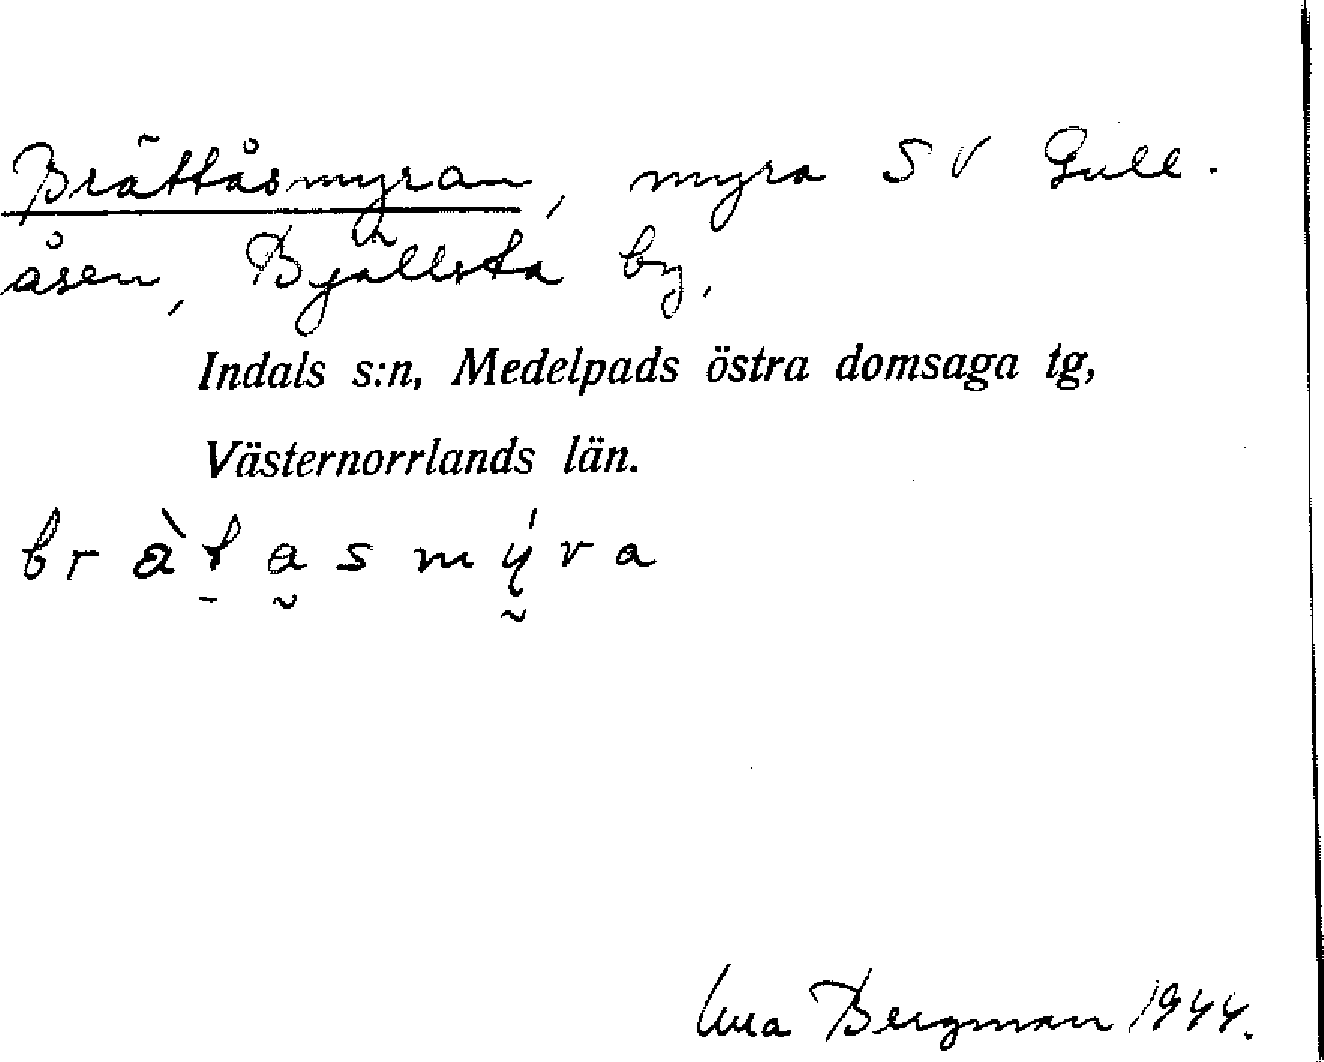 Brättåsmyran, myra SV Gull-
åsen, Bjällsta by,
Indals s:n, Medelpads östra domsaga tg,
Västernorrlands län.
Bergman 1944.